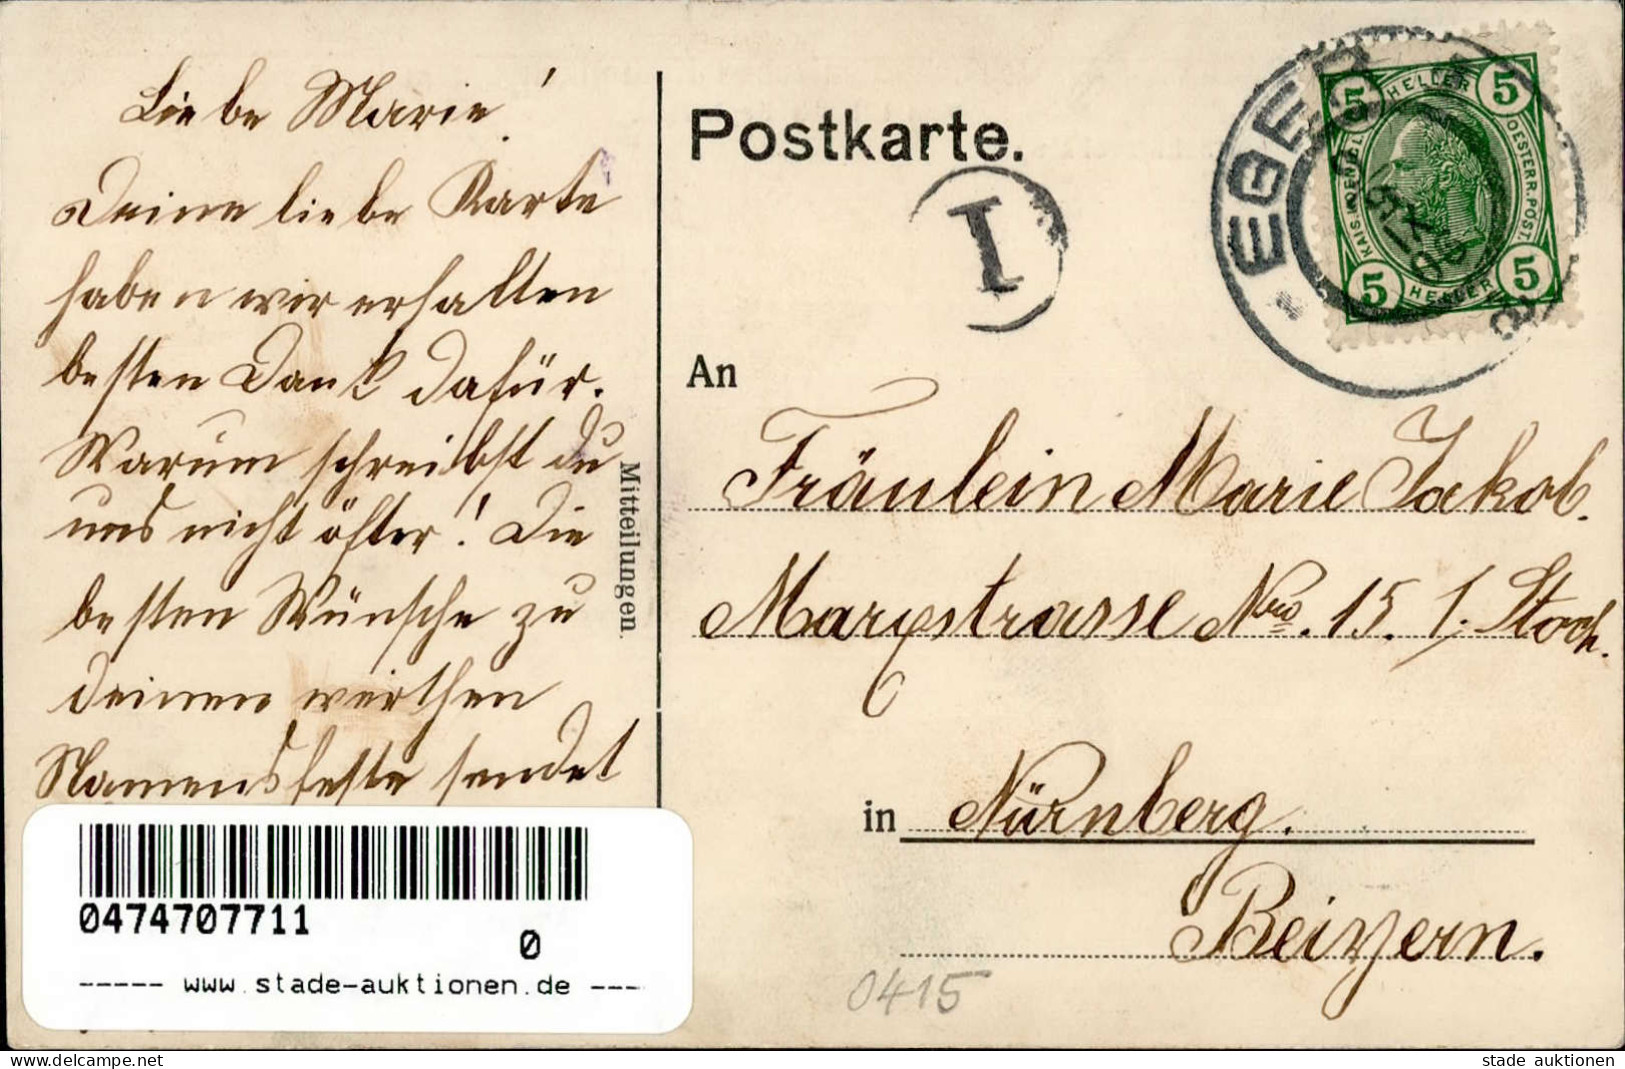 Liebe Marie!
Deine liebe Karte
haben wir erhalten
besten Dank dafür.
Warum schreibst du
uns nicht öfter! Die
besten Wünsche zu
deinem werthen
Namensfeste sendet
Mitteilungen.
0474707711
0
----- www.stade-auktionen.de ---
Postkarte.
I
EGER
5 HELLER 5
KAIS. KOENIGL.
OESTERR. POST.
5 HELLER 5
An
Fräulein Marie Jakob.
Marxstrasse Nro. 15. 1. Stock.
in Nürnberg.
Beiyern.
0415
www.delcampe.net
stade auktionen